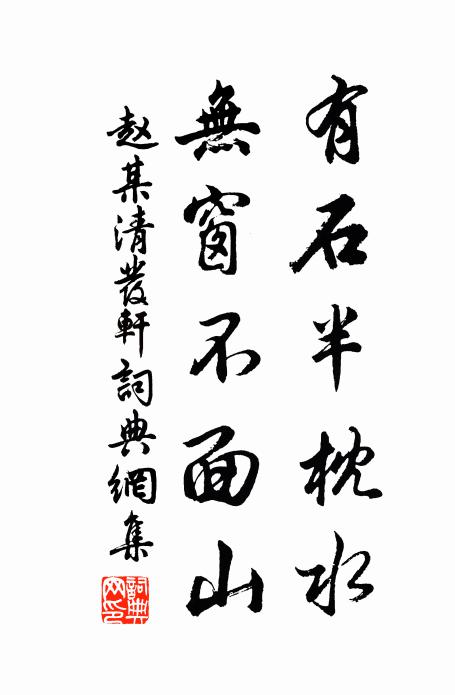 有石半枕水
無窗不面山
赵某清發軒詞典網集
詞典网印